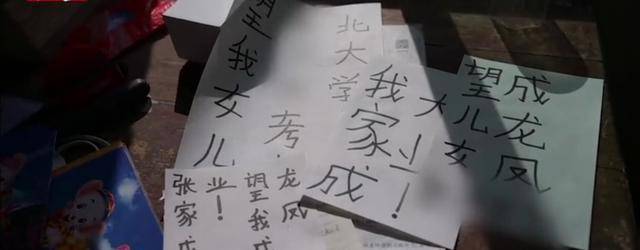 望我女儿
考
北大学
我家成
大业！
望儿女
成龙凤
张家成
业！
望我成
龙凤